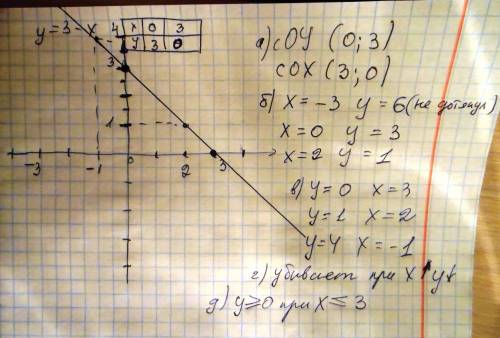 y = 3 - x
x 0 3
y 3 0
4
3
1
-3 -1 0 2 3
а) с OY (0; 3)
с OX (3; 0)
б) x = -3 y = 6 (не дотянул)
x = 0 y = 3
x = 2 y = 1
в) y = 0 x = 3
y = 1 x = 2
y = 4 x = -1
г) убывает при x ↑ y ↓
д) y ≥ 0 при x ≤ 3